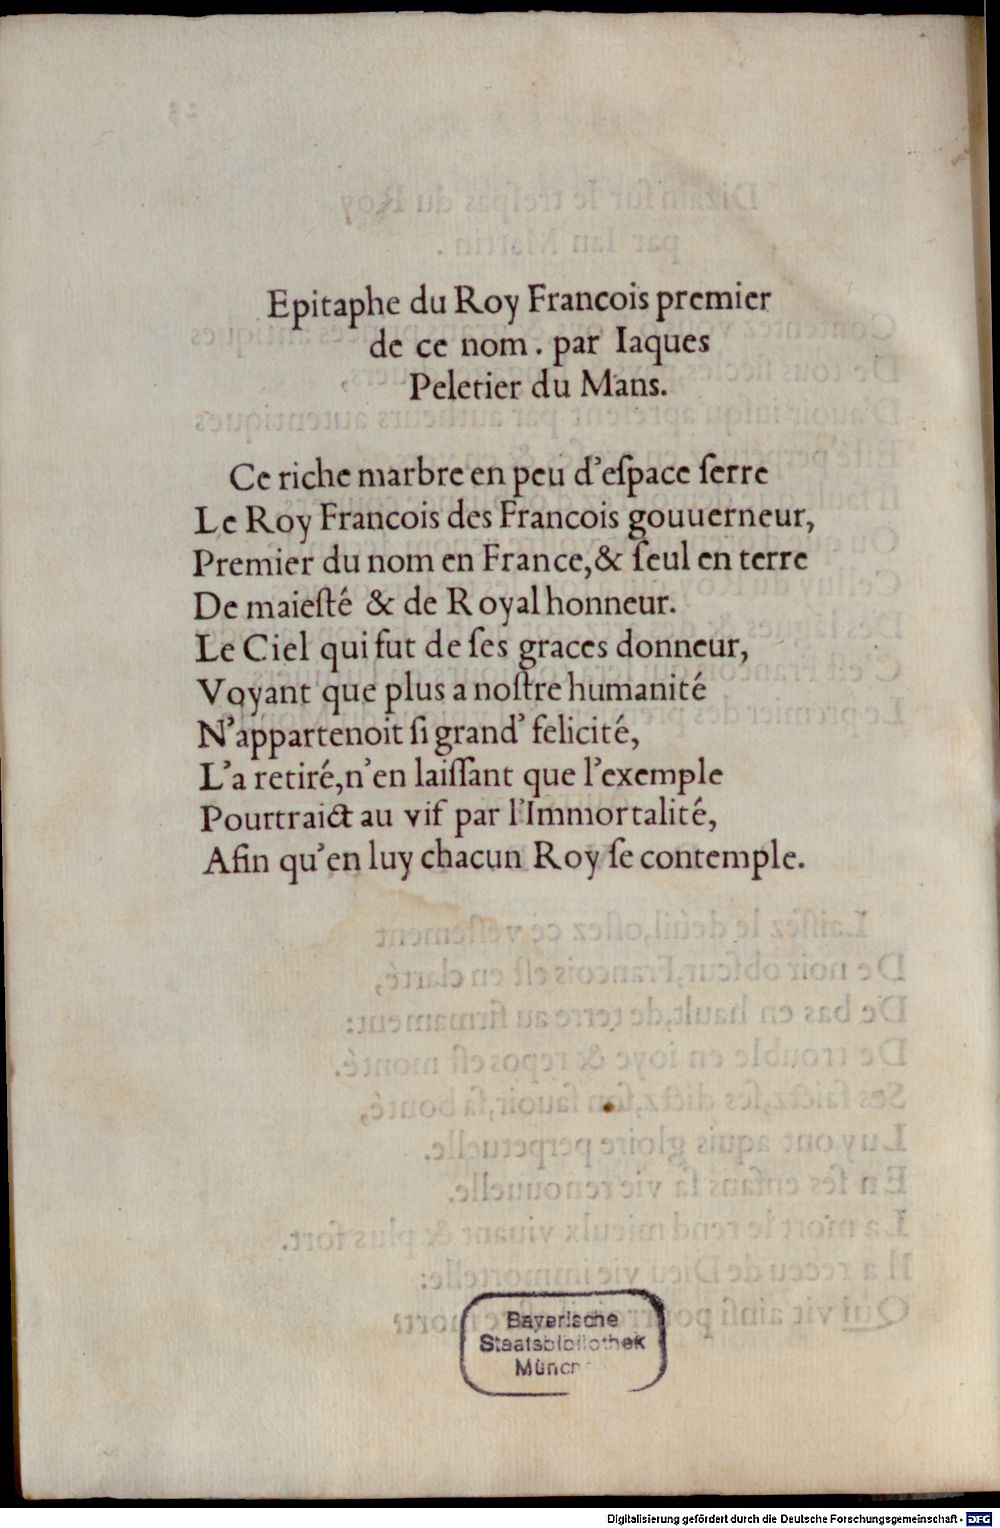 Epitaphe du Roy Francois premier
de ce nom. par Iaques
Peletier du Mans.
Ce riche marbre en peu d'eſpace ſerre
Le Roy Francois des Francois gouuerneur,
Premier du nom en France, & ſeul en terre
De maieſté & de Royal honneur.
Le Ciel qui fut de ſes graces donneur,
Voyant que plus a noſtre humanité
N'appartenoit ſi grand' felicité,
L'a retiré, n'en laiſſant que l'exemple
Pourtraict au vif par l'Immortalité,
Afin qu'en luy chacun Roy ſe contemple.
Bayerische
Staatsbibliothek
Digitalisierung gefördert durch die Deutsche Forschungsgemeinschaft - DFG